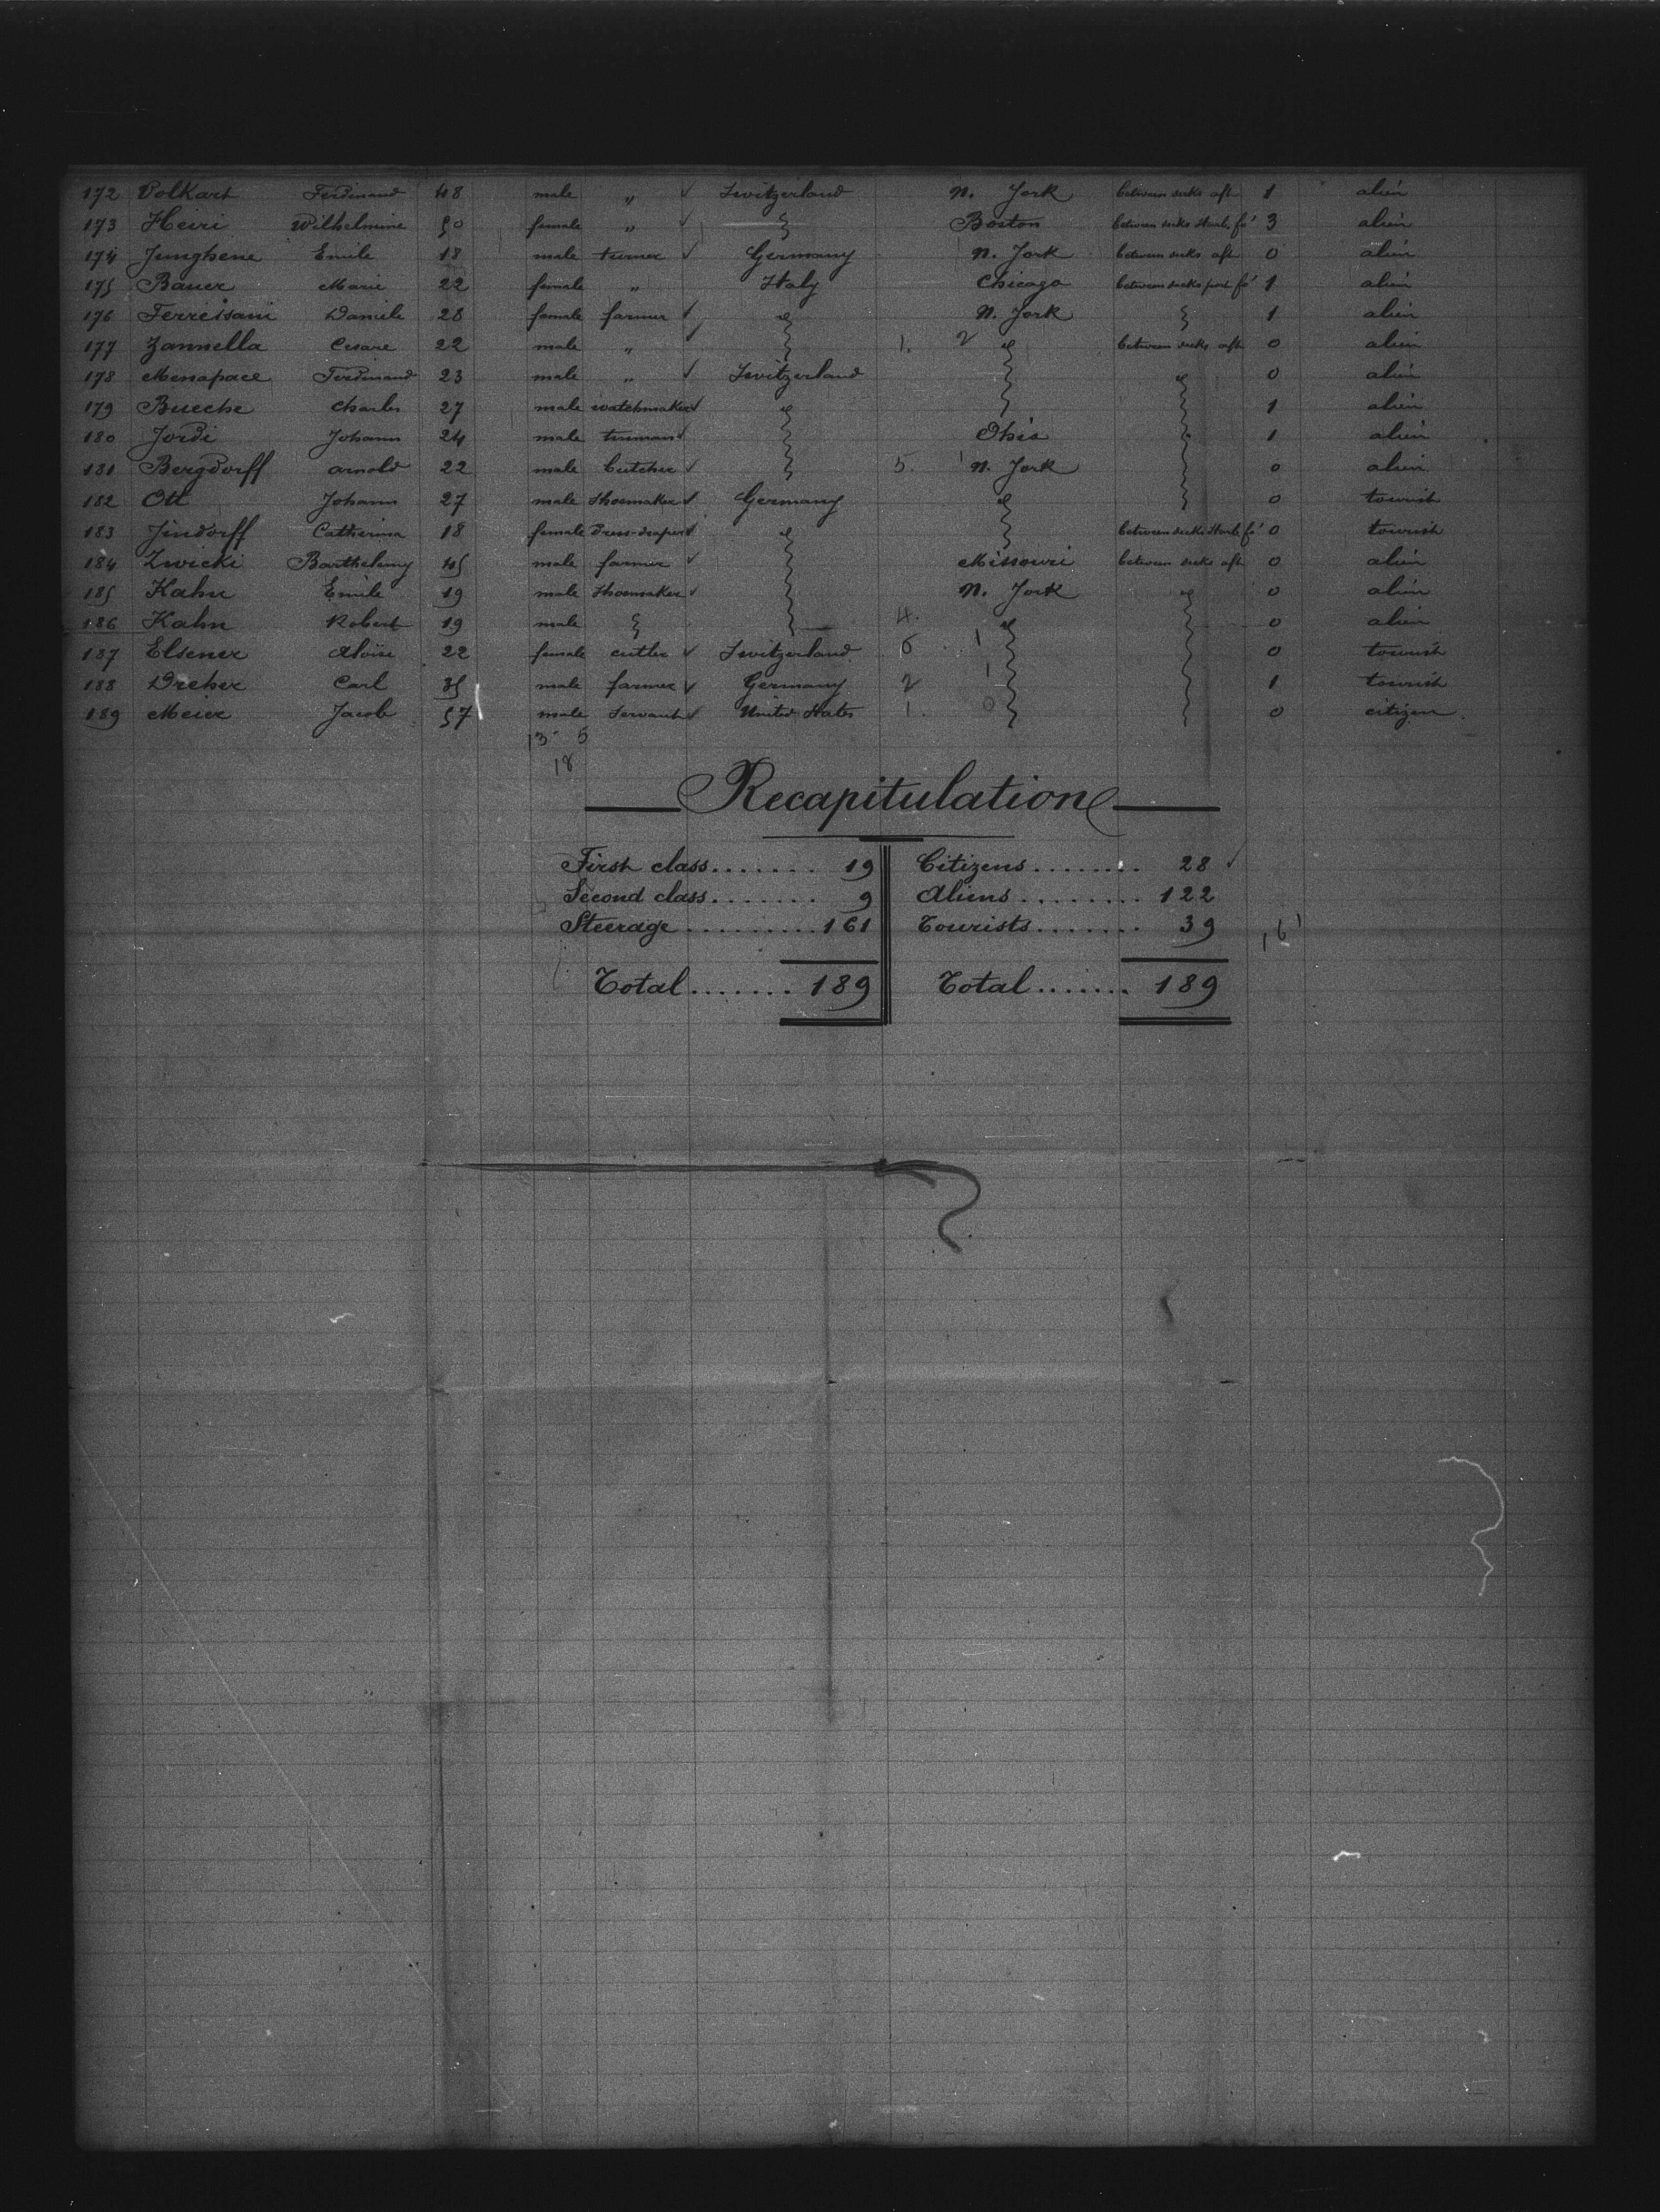 172 Volkart Ferdinand 48 male " ✓ Switzerland N. York between decks aft 1 alien
173 Heiri Wilhelmine 50 female " ✓ Boston between decks starb. fo' 3 alien
174 Junghene Emile 18 male turner ✓ Germany N. York between decks aft 0 alien
175 Bauer Marie 22 female " Italy Chicago between decks port fo' 1 alien
176 Daniele 28 female farmer ✓ N. York 1 alien
177 Zannella Cesare 22 male " ✓ 1. 2 between decks aft 0 alien
178 Menapace Ferdinand 23 male " ✓ Switzerland 0 alien
179 Bueche Charles 27 male watchmaker ✓ 1 alien
180 Jordi Johann 24 male ✓ Ohio 1 alien
181 Bergdorff Arnold 22 male butcher ✓ 5. 1 N. York 0 alien
182 Ott Johann 27 male shoemaker ✓ Germany 0 tourist
183 Jindorff Catherina 18 female dress-draper ✓ between decks starb. fo' 0 tourist
184 Zwicki Barthelemy 45 male farmer ✓ Missouri between decks aft 0 alien
185 Kahn Emile 19 male shoemaker ✓ N. York 0 alien
186 Kahn Robert 19 male 4. 0 alien
187 Elsener Aloïse 22 female cutler ✓ Switzerland 6 1 0 tourist
188 Dreher Carl 35 male farmer ✓ Germany 2 1 1 tourist
189 Meier Jacob 57 male servant ✓ United States 1. 0 0 citizen
13 5
18
Recapitulation
First class....... 19 Citizens........ 28 ✓
Second class....... 9 Aliens......... 122
Steerage.........161 Tourists....... 39
161
Total.......189 Total.......189